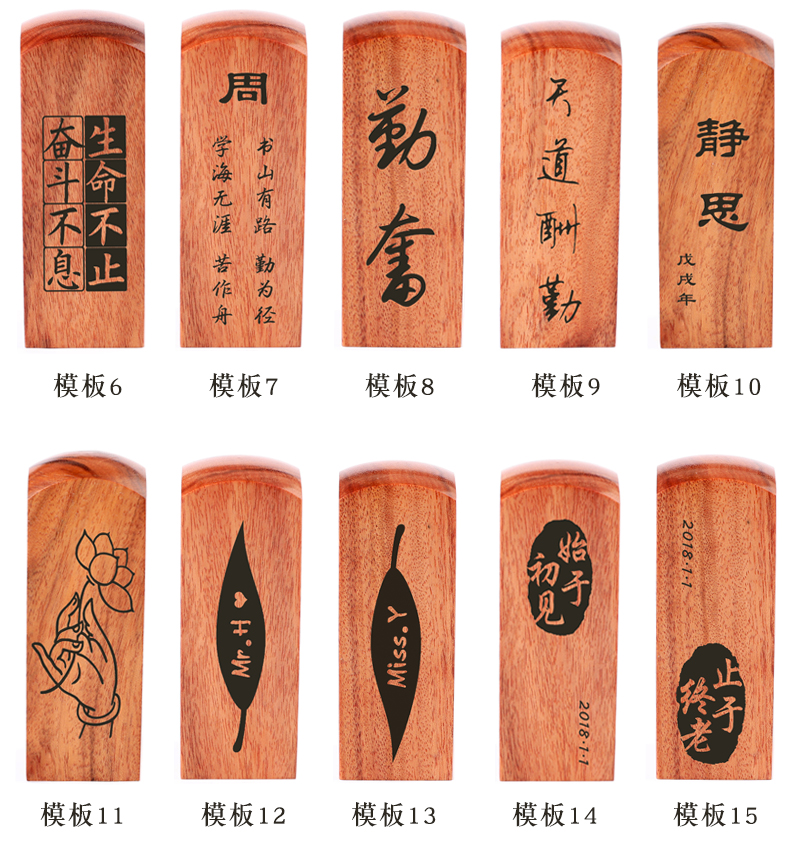 生命不止
奋斗不息
周
书山有路 勤为径
学海无涯 苦作舟
勤奮
天道酬勤
静思
戊戌年
模板6
模板7
模板8
模板9
模板10
Mr.H
Miss.Y
始于
初见
2018·1·1
2018·1·1
止于
终老
模板11
模板12
模板13
模板14
模板15